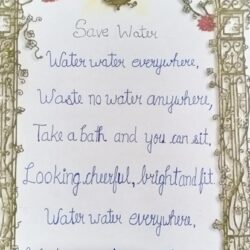 Save Water
Water water everywhere,
Waste no water anywhere,
Take a bath and you can sit,
Looking cheerful, bright and fit.
Water water everywhere,